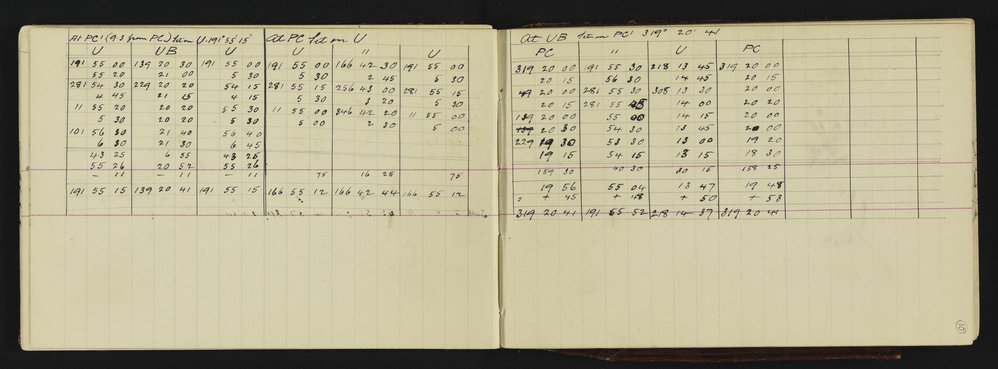 At PC' (9.3 from PC) Set on U 191° 55' 15
U UB U
191 55 00 139 20 30 191 55 00
55 20 21 00 5 30
281 54 30 229 20 20 54 15
4 45 21 15 4 15
11 55 20 20 20 55 30
5 30 20 20 5 30
101 56 30 21 40 56 40
6 30 21 30 6 45
43 25 6 55 43 25
55 26 20 52 55 26
- 11 - 11 - 11
191 55 15 139 20 41 191 55 15
At PC Set on U
U " U
191 55 00 166 42 30 191 55 00
5 30 2 45 5 30
281 55 15 256 43 00 281 55 15
5 30 3 20 5 30
11 55 00 346 42 20 11 55 00
5 00 2 30 5 00
75 16 25 75
166 55 12 166 42 44 166 55 12
At UB Set on PC' 319° 20' 41
PC " U PC
319 20 00 191 55 30 218 13 45 319 20 00
20 15 56 30 14 45 20 15
49 20 00 281 55 30 308 13 30 20 00
20 15 281 55 14 00 20 20
139 20 00 55 00 14 15 20 00
139 20 30 54 30 13 45 20 30
229 19 30 53 30 13 00 19 20
19 15 54 15 13 15 18 30
159 30 40 30 30 15 158 25
19 56 55 04 13 47 19 48
+ 45 + 48 + 50 + 53
319 20 41 191 55 52 218 14 37 319 20 41
6